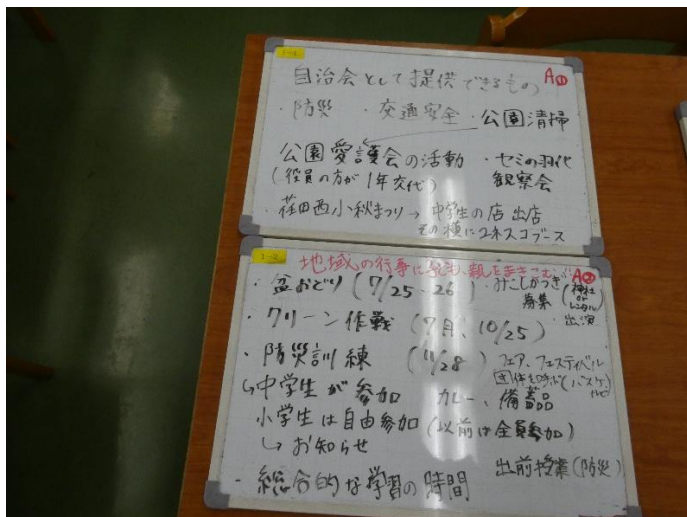 1-2
自治会として提供できるもの
A①
・防災 ・交通安全 ・公園清掃
公園愛護会の活動
(役員の方が1年交代)
・セミの羽代
観察会
・荏田西小秋まつり→中学生の店 出店
その横にユネスコブース
1-2
地域の行事に
親をまきこむ
A②
・盆おどり (7/25・26)
・みこしかつぎ
募集 (神社 or レンタル
・クリーン作戦 (7月、10/25)
・出演
・防災訓練 (11/28)
フェア、フェスティバル
団体を呼ぶ(バスケ、
↳中学生が参加 カレー、備蓄品
小学生は自由参加 (以前は全員参加)
↳お知らせ
出前授業(防災)
・総合的な学習の時間